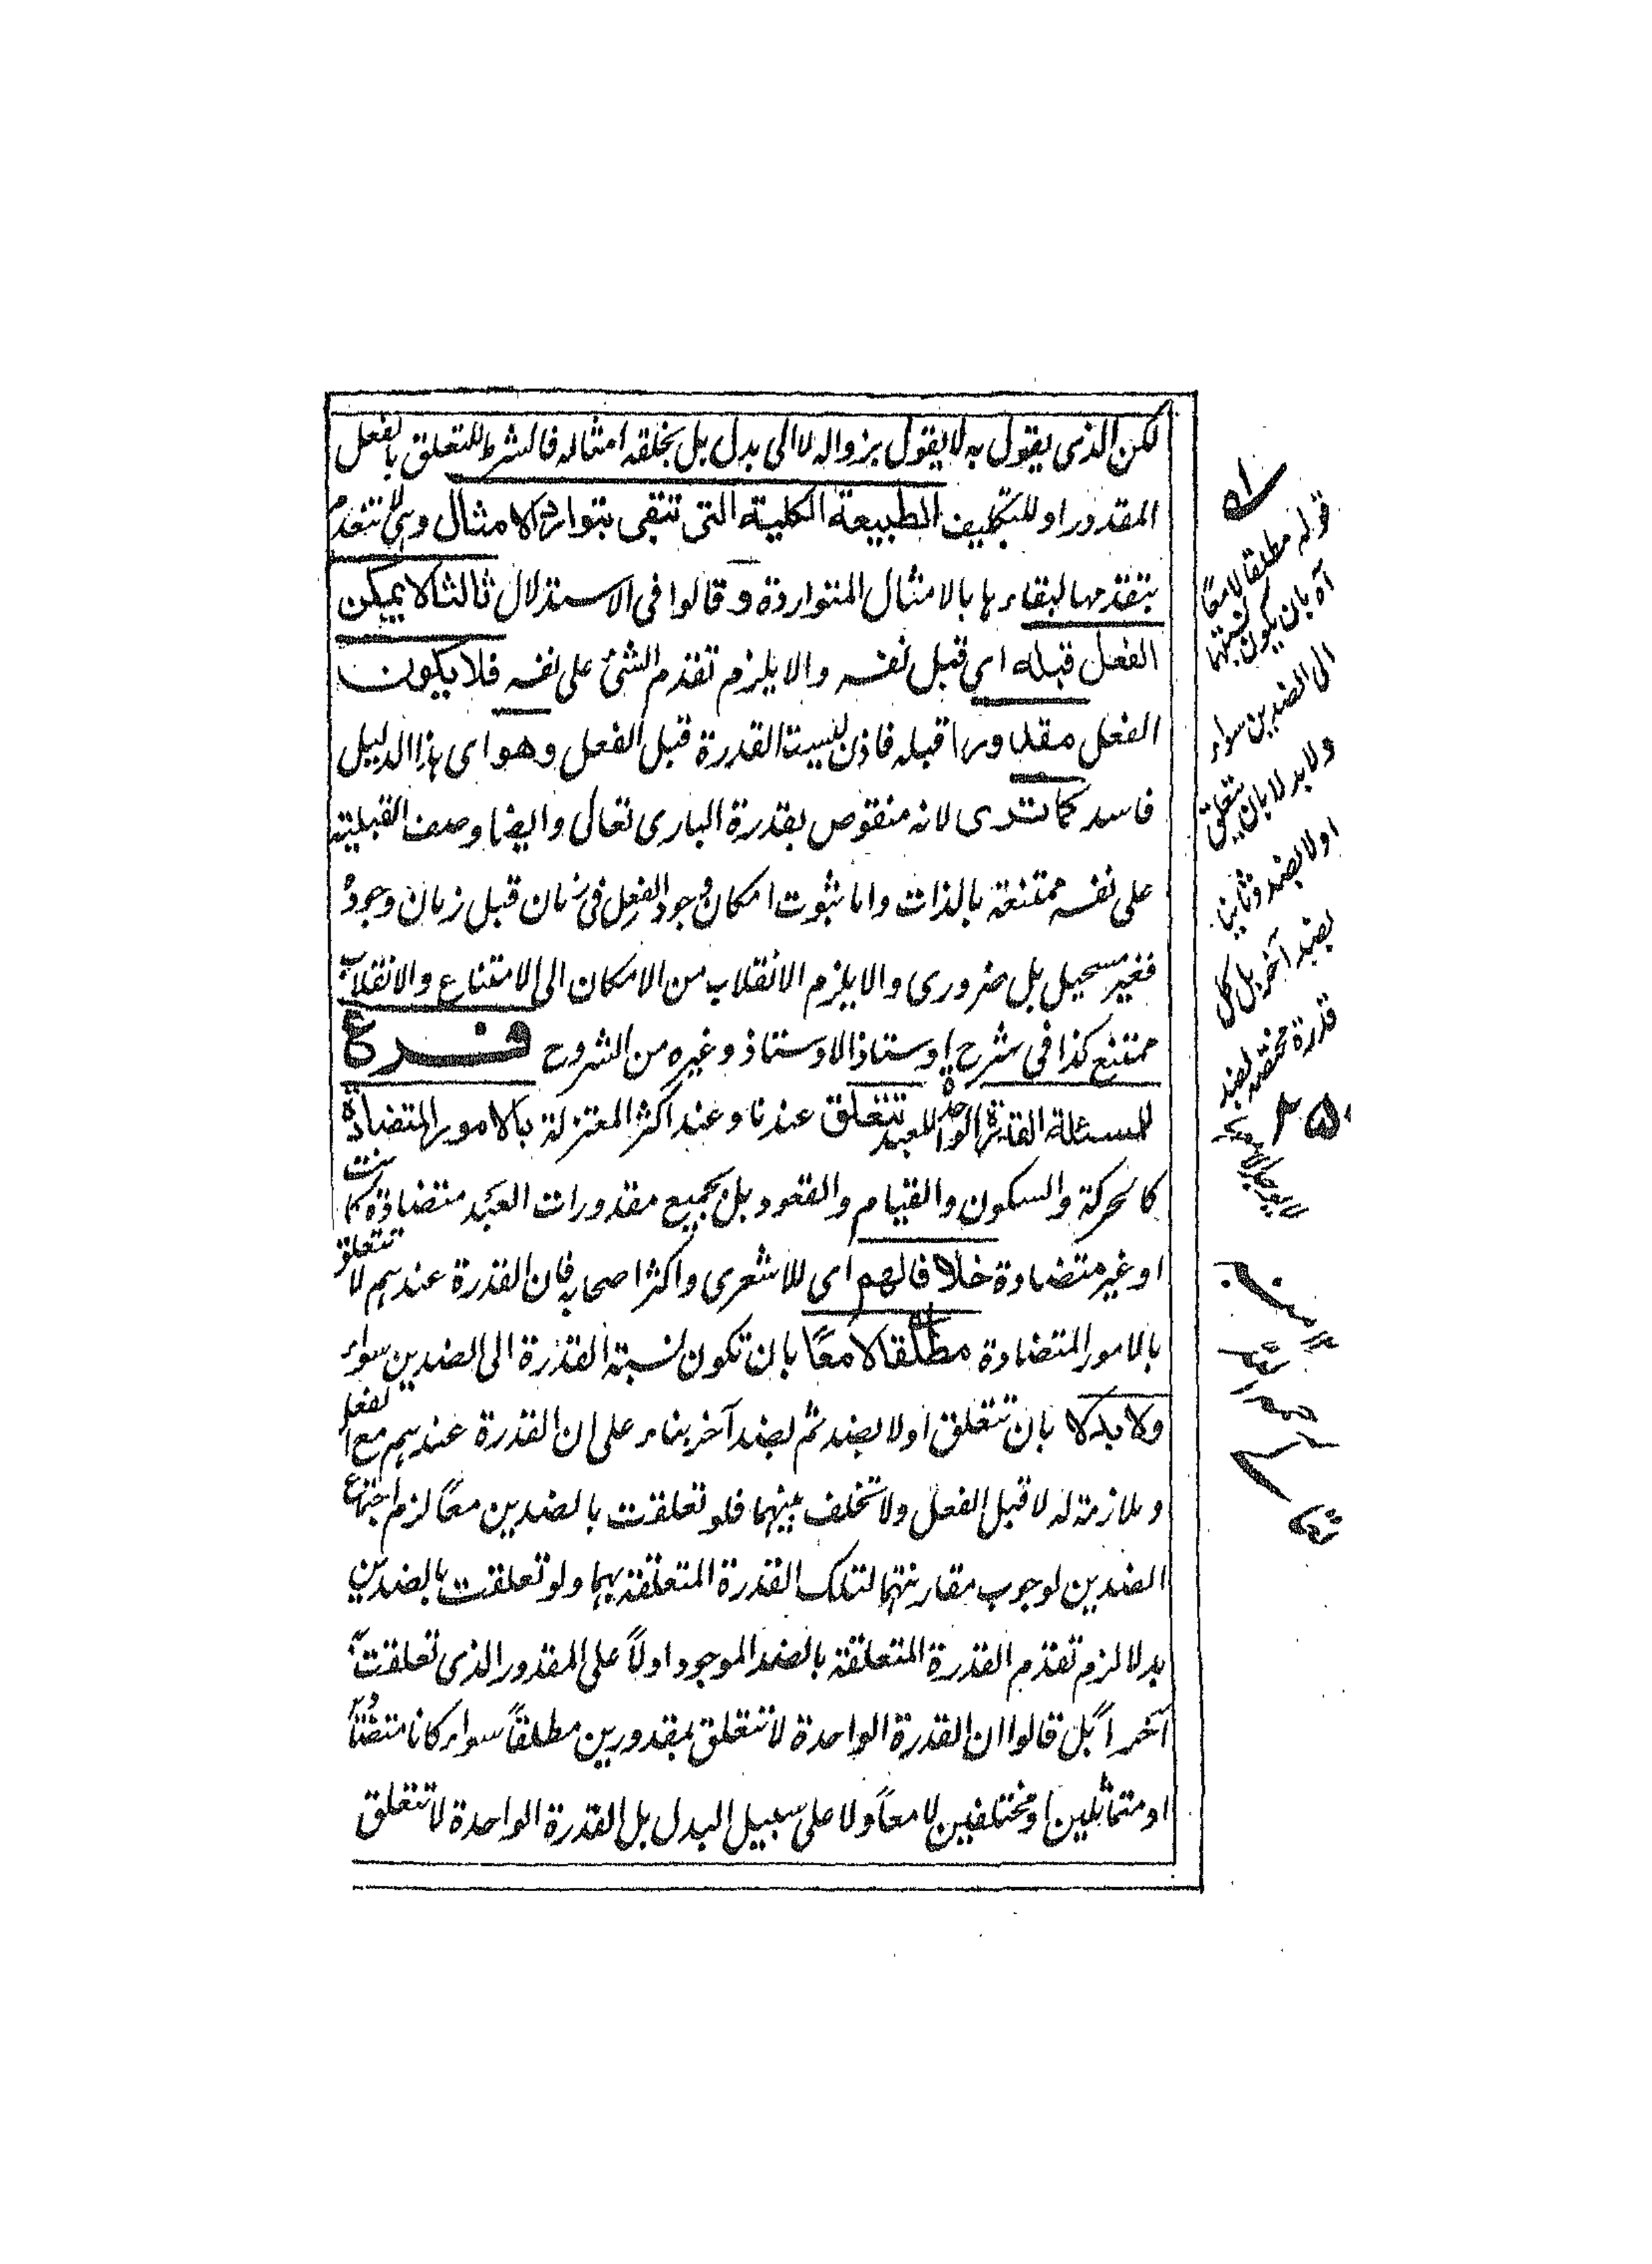 لكن الذى يقول به لا يقول بزواله لا الى بدل بل بخلقه امثاله فالشرط للتعلق بالفعل
المقدور او للتكليف الطبيعة الكلية التى تبقى بتوارد الامثال وهى لا تتقدم
بتقدمها لبقاءها بالامثال المتواردة وقالوا فى الاستدلال ثالثا لا يمكن
الفعل قبله اى قبل نفسه والا يلزم تقدم الشئ على نفسه فلا يكون
الفعل مقدورا قبله فاذن ليست القدرة قبل الفعل وهو اى هذا الدليل
فاسد كما ترى لانه منقوض بقدرة البارى تعالى وايضا وصف القبلية
على نفسه ممتنعة بالذات واما ثبوت امكان وجود الفعل فى زمان قبل زمان وجوده
فغير مستحيل بل ضرورى والا يلزم الانقلاب من الامكان الى الامتناع والانقلاب
ممتنع كذا فى شرح اوستاذ الاوستاذ وغيره من الشروح فرع
للمسئلة القدرة الواحدة للعبد تتعلق عندنا وعند اكثر المعتزلة بالامور المتضادة
كالحركة والسكون والقيام والقعود بل بجميع مقدورات العبد متضادة كانت
او غير متضادة خلافا لهم اى للاشعرى واكثر اصحابه فان القدرة عندهم لا تتعلق
بالامور المتضادة مطلقا لا معًا بان تكون نسبة القدرة الى الضدين سواء
ولا بدلا بان تتعلق اولا بضد ثم بضد آخر بناء على ان القدرة عندهم مع الفعل
وملازمة له لا قبل الفعل ولا تخلف بينهما فلو تعلقت بالضدين معًا لزم اجتماع
الضدين لوجوب مقارنتهما لتلك القدرة المتعلقة بهما ولو تعلقت بالضدين
بدلا لزم تقدم القدرة المتعلقة بالضد الموجود اولاً على المقدور الذى تعلقت به
آخراً بل قالوا ان القدرة الواحدة لا تتعلق بمقدورين مطلقاً سواء كانا متضادين
او متماثلين او مختلفين لا معاً ولا على سبيل البدل بل القدرة الواحدة لا تتعلق
قوله مطلقا لا معًا
آه بان يكون نسبتها
الى الضدين سواء
ولا بدلا بان يتعلق
اولا بضد وثانيا
بضد آخر بل كل
قدرة مختصة بضد